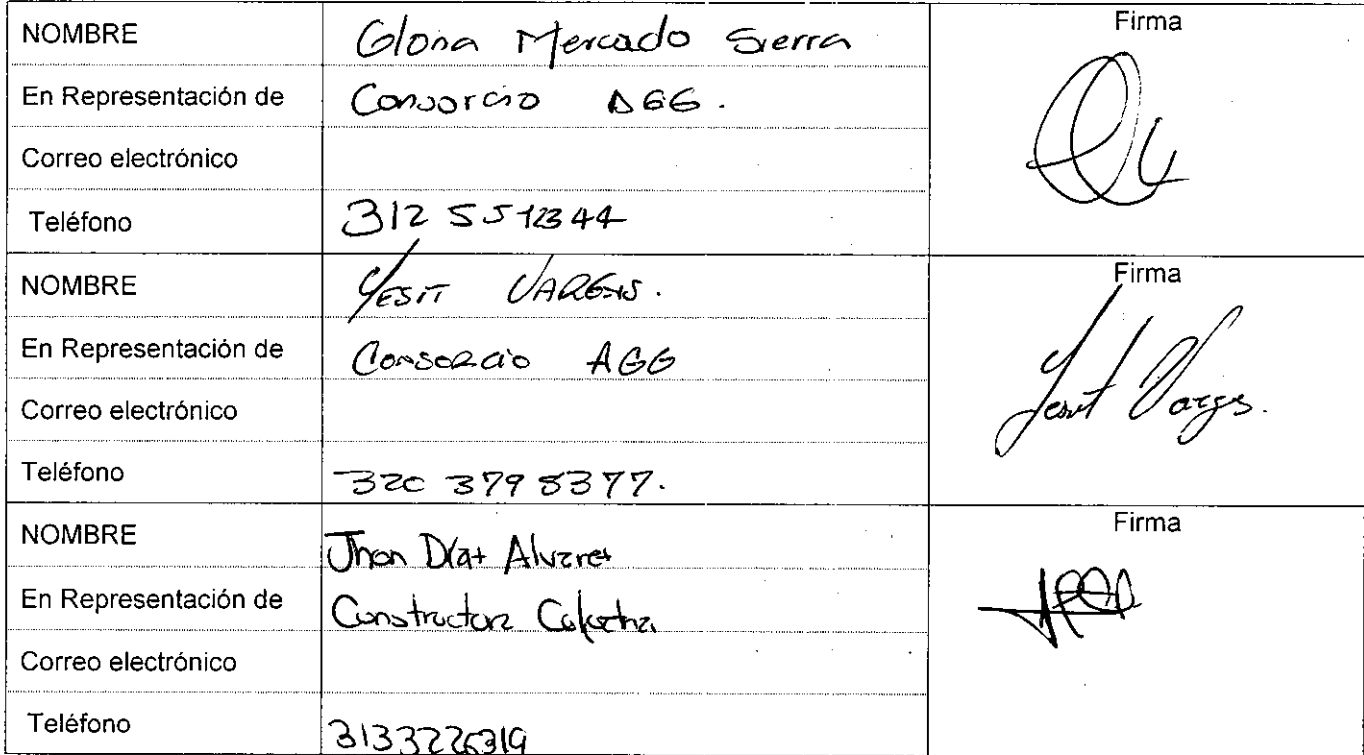 NOMBRE Gloria Mercado Sierra Firma
En Representación de Consorcio AGG.
Correo electrónico
Teléfono 312 5512344
NOMBRE Yesit VARGAS. Firma
En Representación de Consorcio AGG
Correo electrónico Yesit Vargas.
Teléfono 320 3798377.
NOMBRE Jhon Díaz Alvarez Firma
En Representación de Constructora
Correo electrónico
Teléfono 3133226319